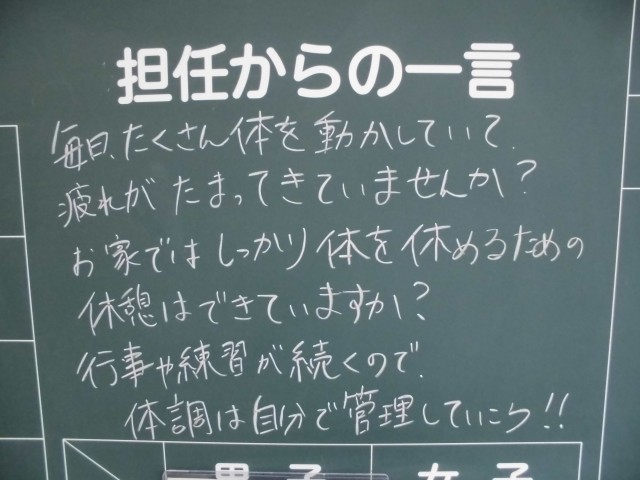 担任からの一言
毎日、たくさん体を動かしていて、
疲れがたまってきていませんか?
お家ではしっかり体を休めるための
休憩はできていますか?
行事や練習が続くので、
体調は自分で管理していこう!!
男子 女子